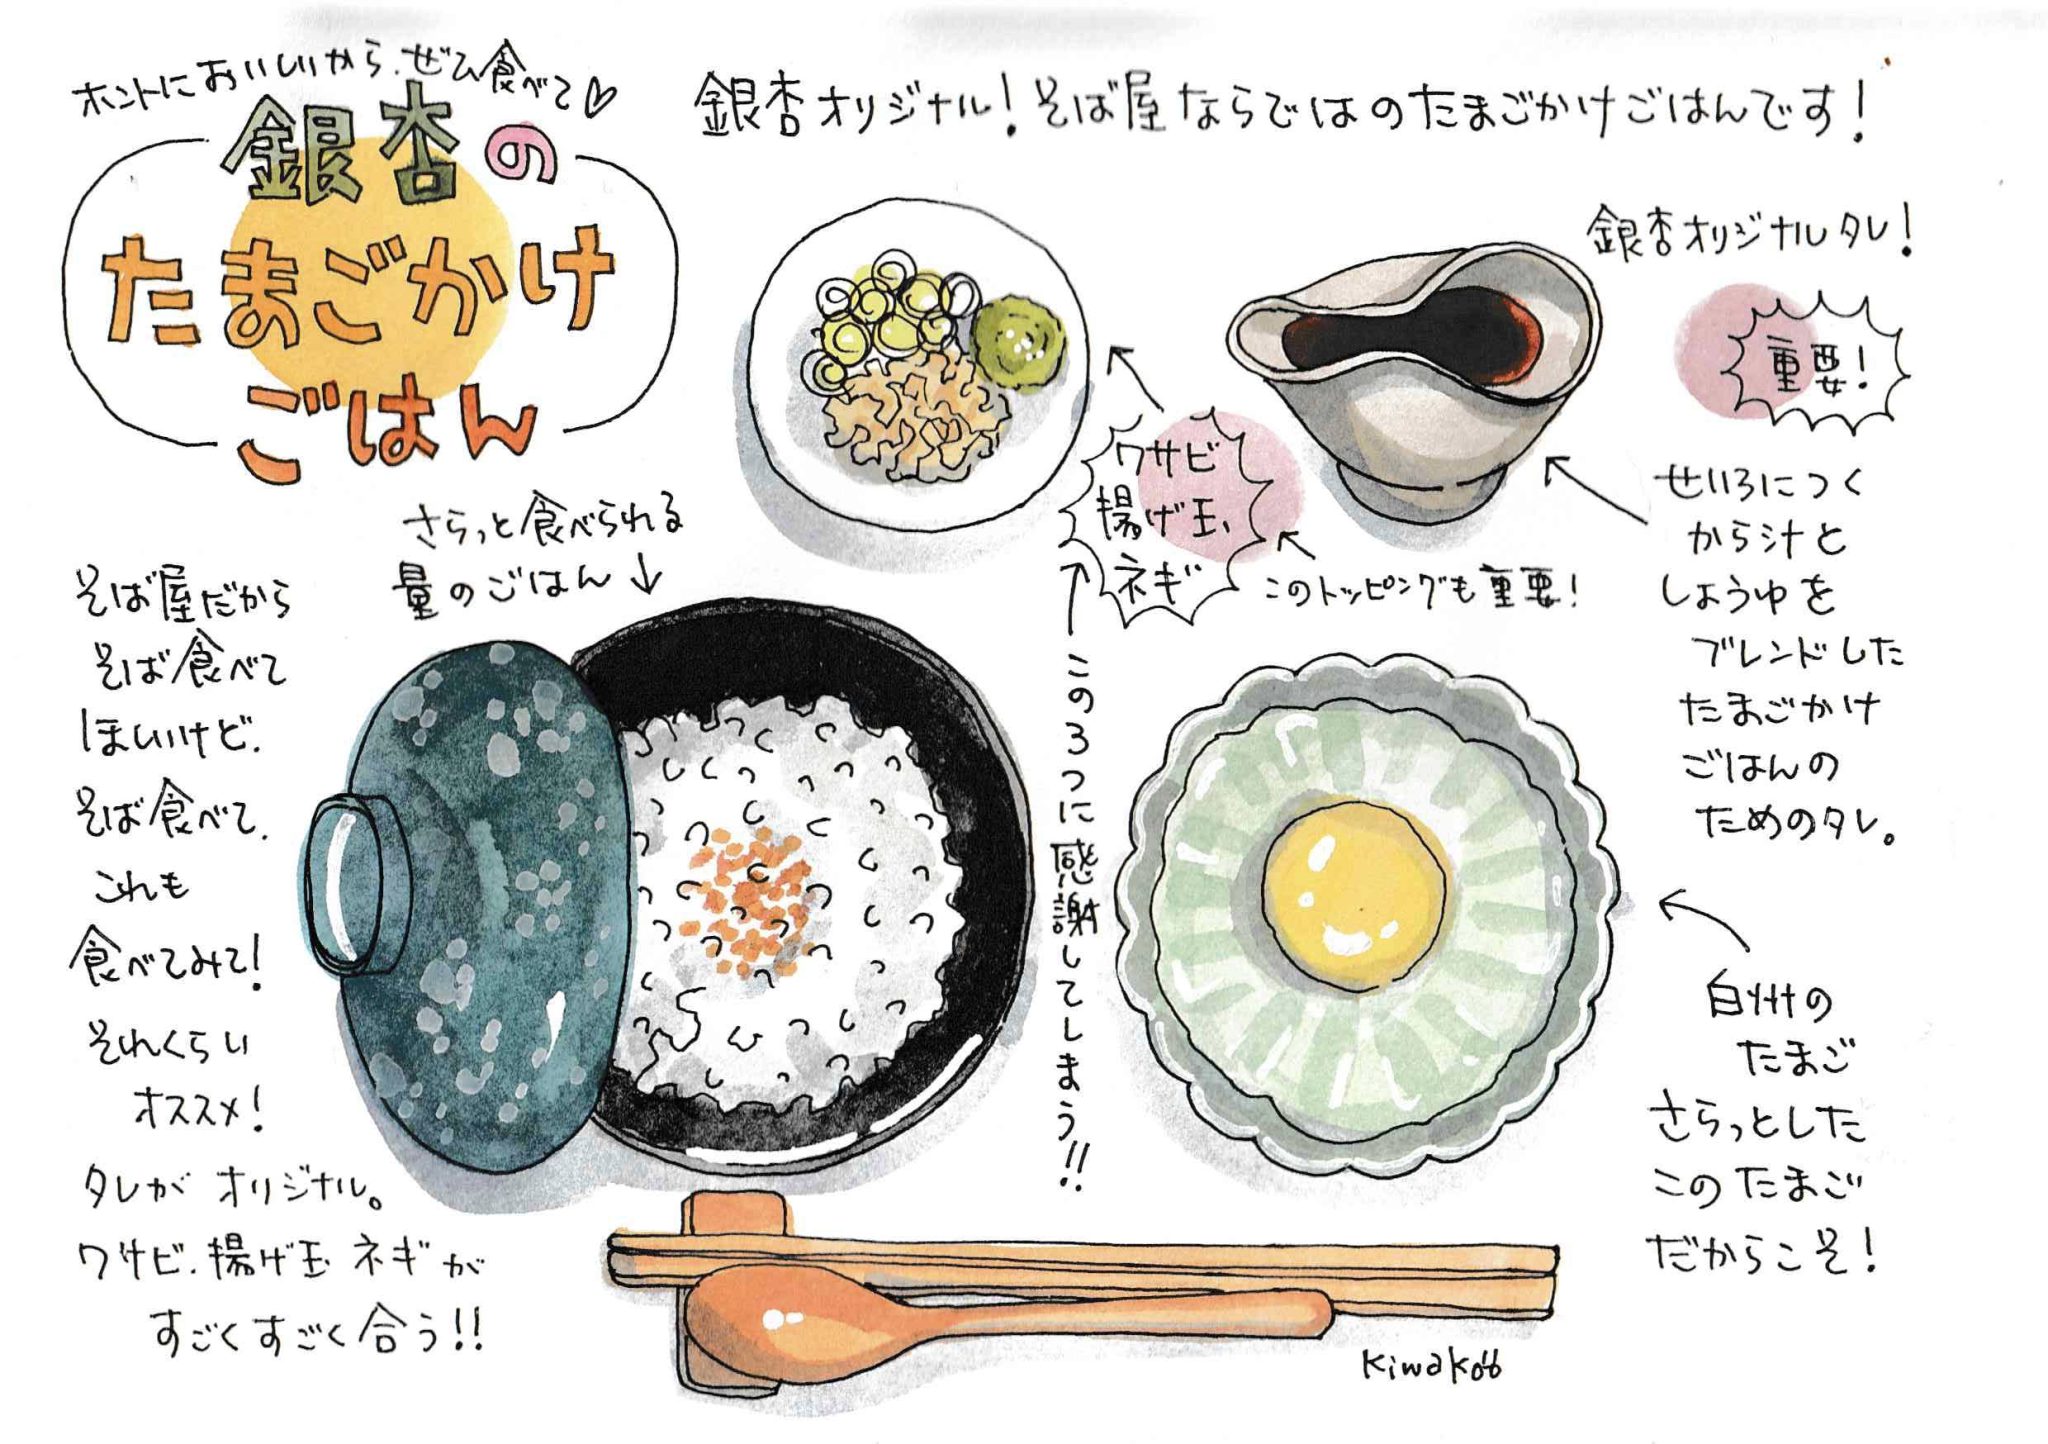 ホントにおいしいから、ぜひ食べて♡
銀杏の
たまごかけ
ごはん
銀杏オリジナル！そば屋ならではのたまごかけごはんです！
銀杏オリジナルタレ！
重要！
せいろにつく
から汁と
しょうゆを
ブレンドした
たまごかけ
ごはんの
ためのタレ。
ワサビ
揚げ玉、
ネギ
このトッピングも重要！
この3つに感謝してしまう!!
さらっと食べられる
量のごはん
そば屋だから
そば食べて
ほしいけど、
そば食べて、
これも
食べてみて！
それくらい
オススメ！
タレがオリジナル。
ワサビ、揚げ玉 ネギが
すごくすごく合う!!
白州の
たまご
さらっとした
このたまご
だからこそ！